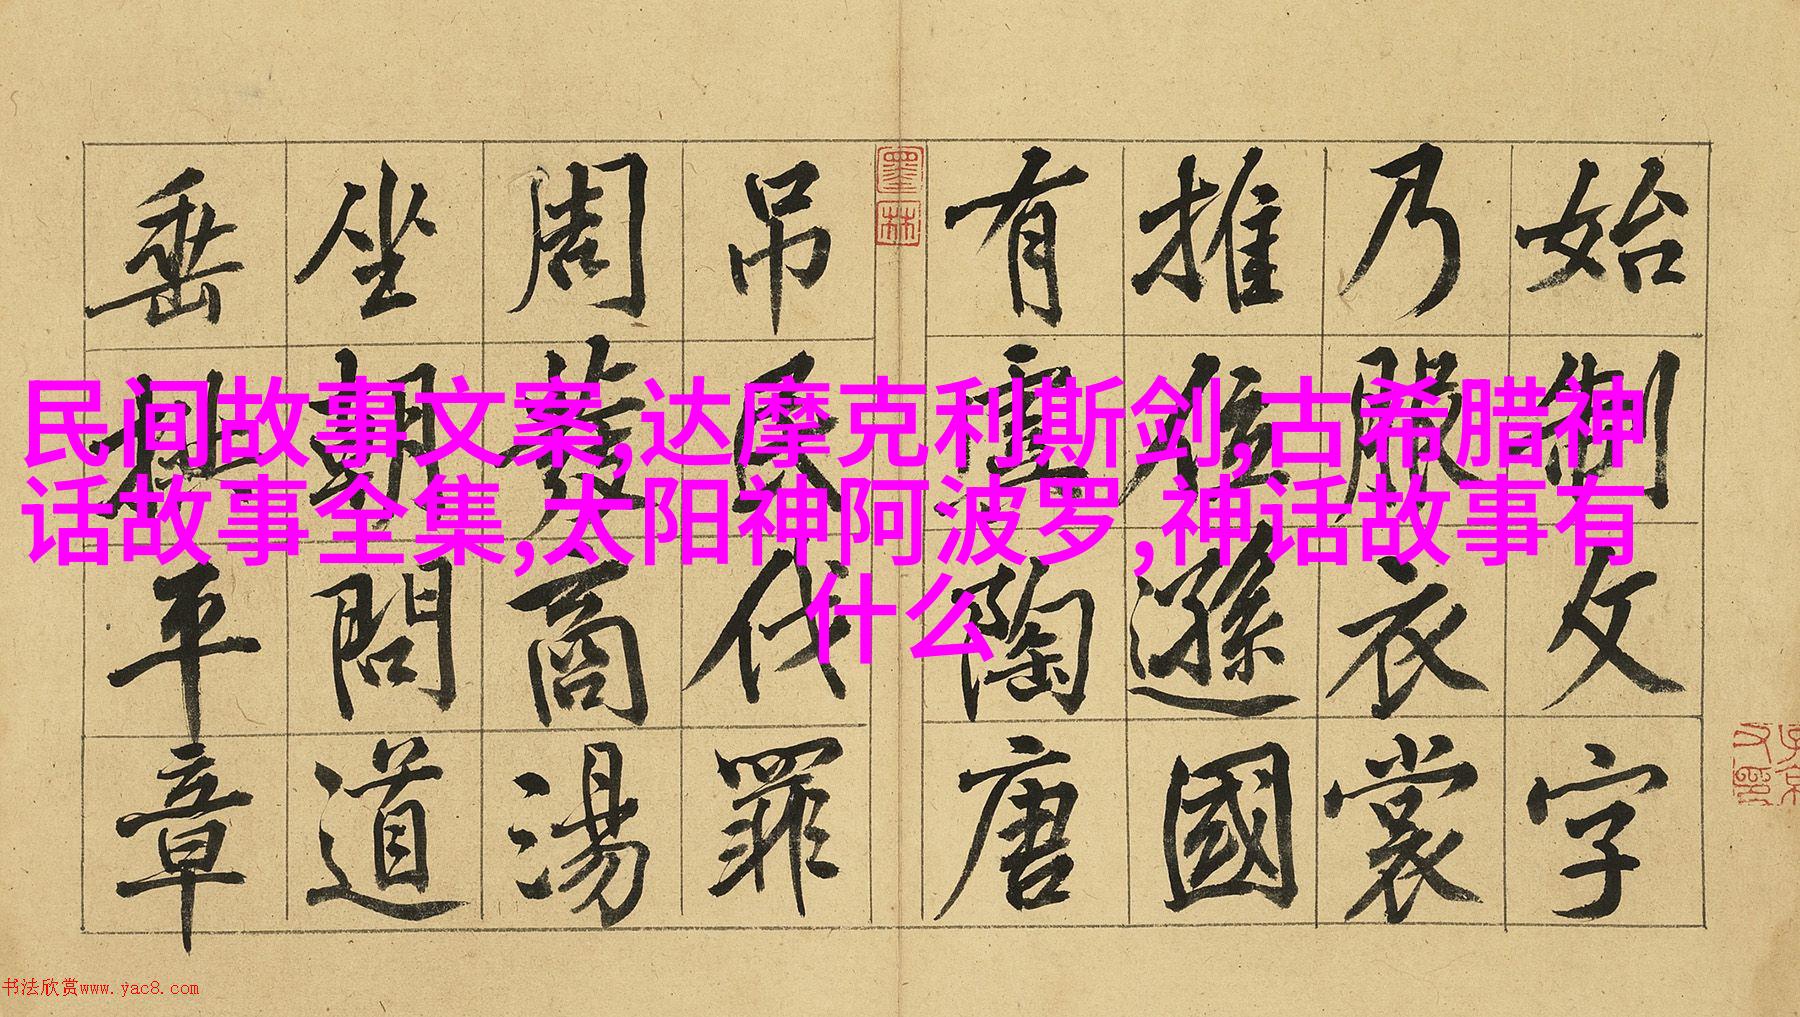 民间故事文案,达摩克利斯剑,古希腊神
话故事全集,太阳神阿波罗,神话故事有
什么
始制文字
乃服衣裳
推位遜國
有虞陶唐
墨林
吊民伐罪
周發商湯
坐朝問道
垂拱平章
书法欣赏www.yac8.com